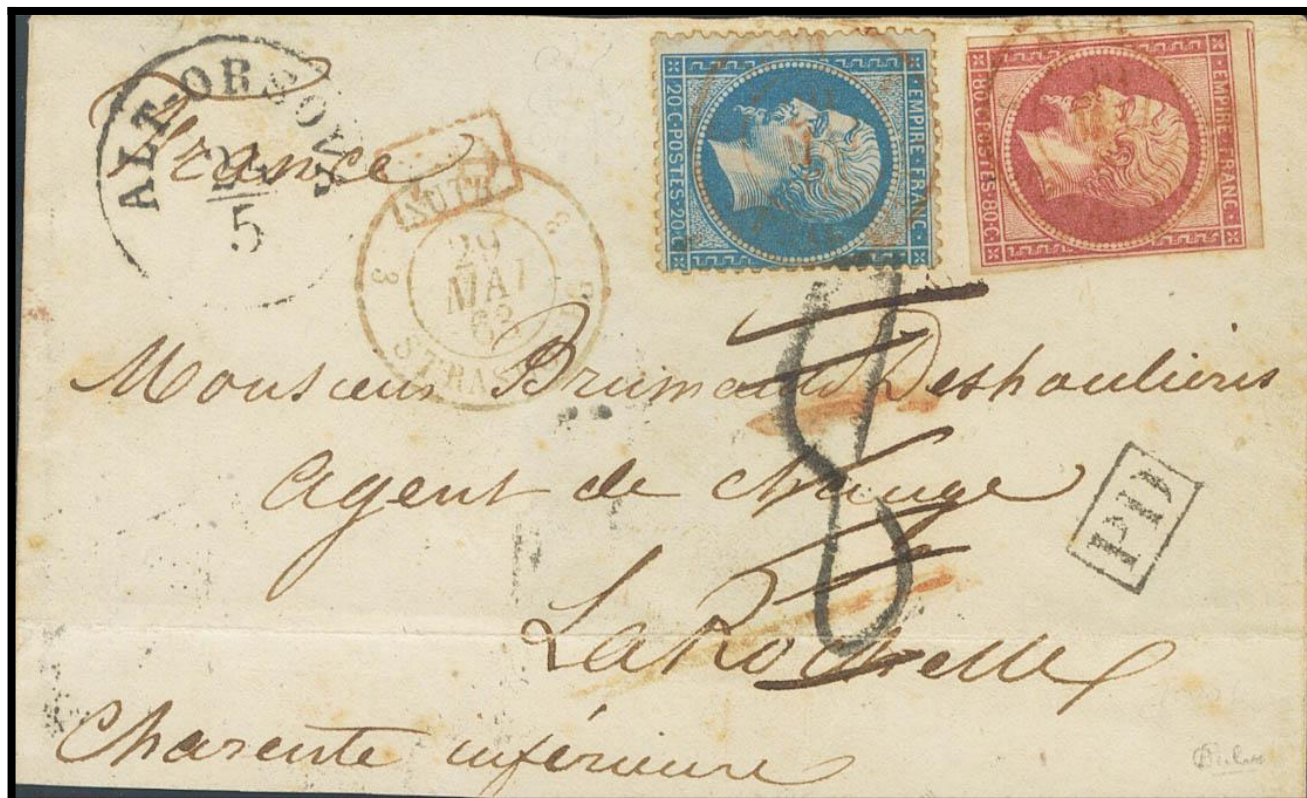 ALT-ORSOVA
5
France
AUTR
3 3
29
MAI
62
STRASB
20·C·POSTES·20·C
EMPIRE·FRANC
80·C·POSTES·80·C
EMPIRE·FRANC
8
Monsieur Brumauld Deshoulieris
agent de change
PD
La Rochelle
Charente inférieure